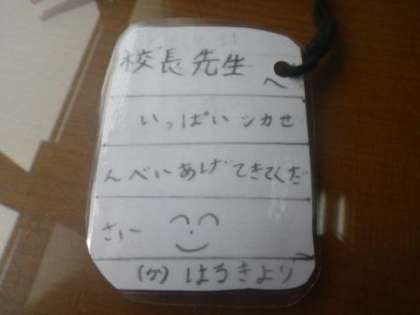 校長先生
へ
いっぱいシカせ
んべいあげてきてくだ
さいー
(か) はるきより